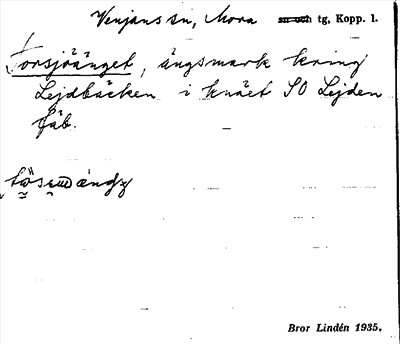 Venjans sn, Mora sn och tg, Kopp. l.
Torsjöänget, ängsmark kring
Lejdbäcken i knäet SO Lejden
fäb.
Bror Lindén 1935.